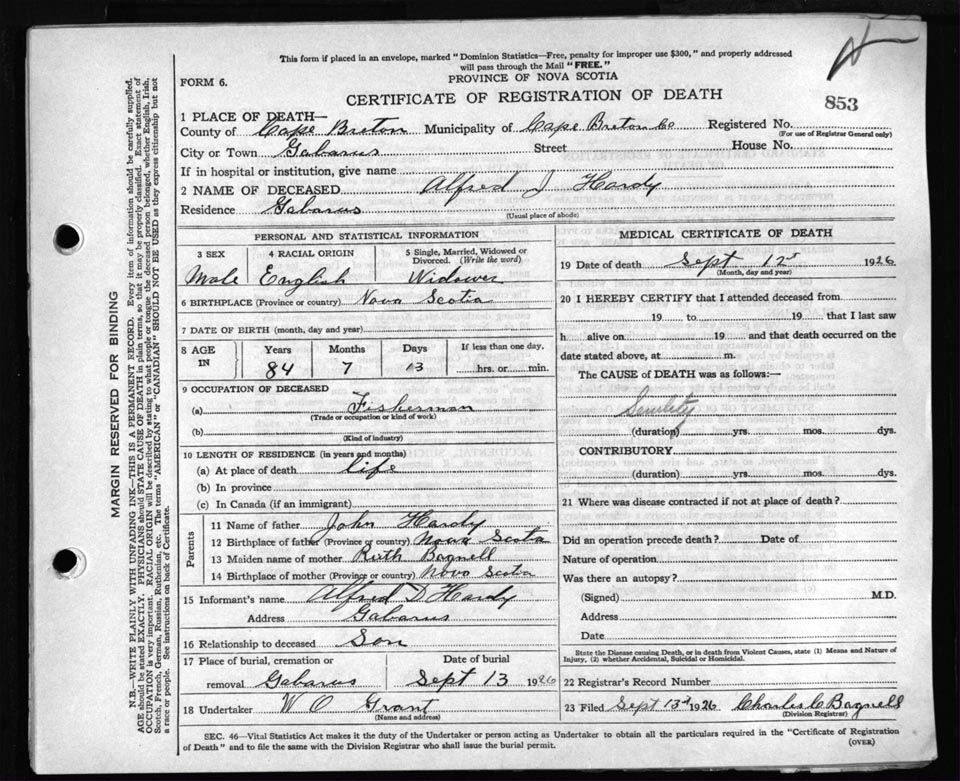 This form if placed in an envelope, marked "Dominion Statistics—Free, penalty for improper use $300," and properly addressed
will pass through the Mail "FREE."
PROVINCE OF NOVA SCOTIA
FORM 6.
CERTIFICATE OF REGISTRATION OF DEATH
853
1 PLACE OF DEATH—
County of Cape Breton Municipality of Cape Breton Co Registered No.
(For use of Registrar General only)
City or Town Gabarus Street House No.
If in hospital or institution, give name
2 NAME OF DECEASED Alfred J Hardy
Residence Gabarus
(Usual place of abode)
PERSONAL AND STATISTICAL INFORMATION
3 SEX 4 RACIAL ORIGIN 5 Single, Married, Widowed or
Divorced. (Write the word)
Male English Widower
6 BIRTHPLACE (Province or country) Nova Scotia
7 DATE OF BIRTH (month, day and year)
8 AGE IN Years Months Days If less than one day,
84 7 13 hrs. or min.
9 OCCUPATION OF DECEASED
(a) Fisherman
(Trade or occupation or kind of work)
(b)
(Kind of industry)
10 LENGTH OF RESIDENCE (in years and months)
(a) At place of death life
(b) In province
(c) In Canada (if an immigrant)
Parents
11 Name of father John Hardy
12 Birthplace of father (Province or country) Nova Scota
13 Maiden name of mother Ruth Bagnell
14 Birthplace of mother (Province or country) Nova Scota
15 Informant's name Alfred D Hardy
Address Gabarus
16 Relationship to deceased Son
17 Place of burial, cremation or Date of burial
removal Gabarus Sept 13 1926
18 Undertaker W C Grant
(Name and address)
MEDICAL CERTIFICATE OF DEATH
19 Date of death Sept 12st 1926
(Month, day and year)
20 I HEREBY CERTIFY that I attended deceased from
19 to 19 that I last saw
h alive on 19 and that death occurred on the
date stated above, at m.
The CAUSE of DEATH was as follows:—
(duration) yrs. mos. dys.
CONTRIBUTORY
(duration) yrs. mos. dys.
21 Where was disease contracted if not at place of death?
Did an operation precede death? Date of
Nature of operation
Was there an autopsy?
(Signed) M.D.
Address
Date
State the Disease causing Death, or in death from Violent Causes, state (1) Means and Nature of
Injury, (2) whether Accidental, Suicidal or Homicidal.
22 Registrar's Record Number
23 Filed Sept 13d 1926 Charles C Bagnell
(Division Registrar)
SEC. 46—Vital Statistics Act makes it the duty of the Undertaker or person acting as Undertaker to obtain all the particulars required in the "Certificate of Registration
of Death" and to file the same with the Division Registrar who shall issue the burial permit.
(OVER)
MARGIN RESERVED FOR BINDING
N.B.—WRITE PLAINLY, WITH UNFADING INK—THIS IS A PERMANENT RECORD. Every item of information should be carefully supplied.
AGE should be stated EXACTLY. PHYSICIANS should STATE CAUSE OF DEATH in plain terms, so that it may be properly classified. Exact statement of
OCCUPATION is very important. RACIAL ORIGIN will be described by stating to what people or tongue the deceased person belonged, whether English, Irish,
Scotch, French, German, Russian, Ruthenian, etc. The terms "AMERICAN" or "CANADIAN" SHOULD NOT BE USED as they express citizenship but not
a race or people. See instructions on back of Certificate.